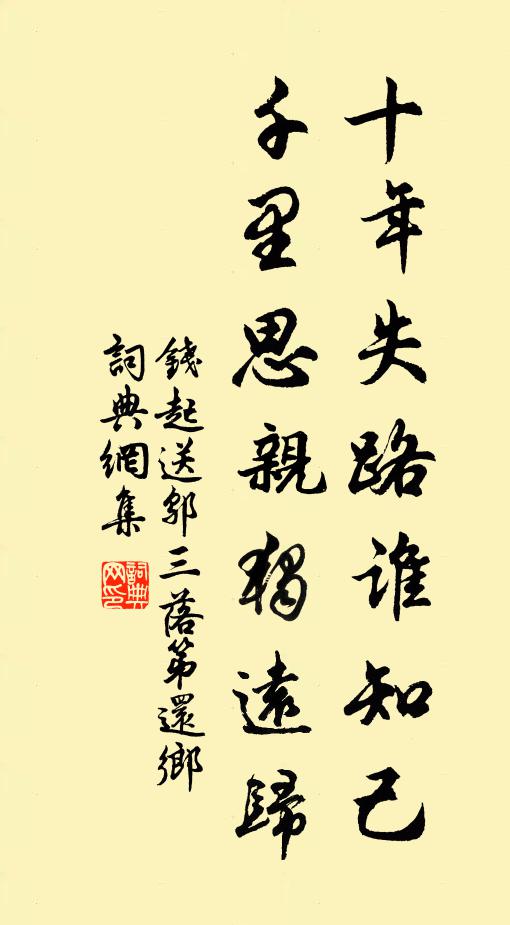 十年失路誰知己
千里思親獨遠歸
錢起送鄔三落第還鄉
詞典網集
詞典網印